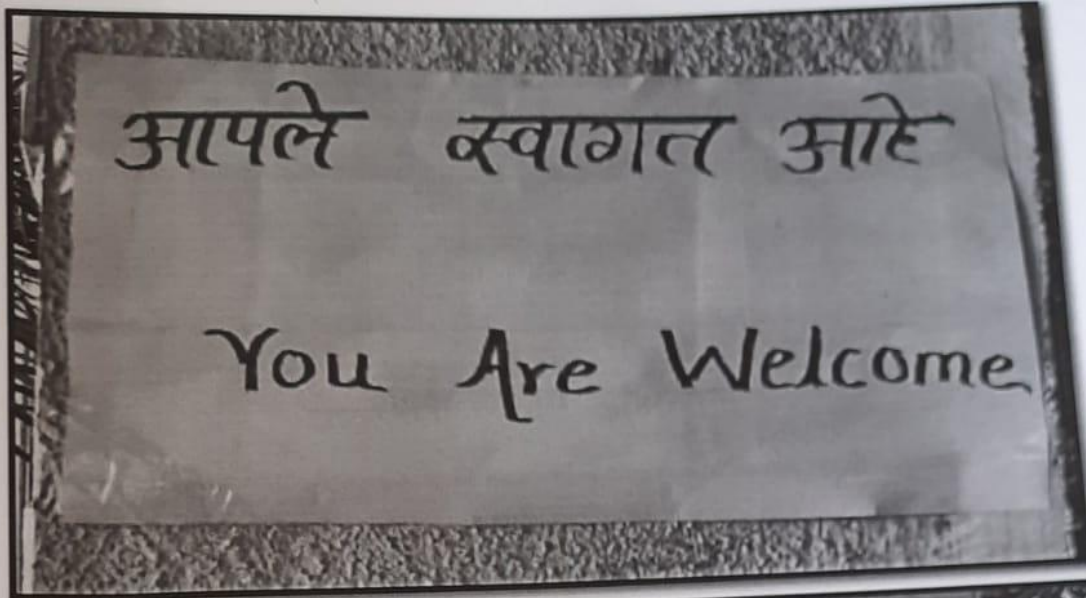 आपले स्वागत आहे
You Are Welcome